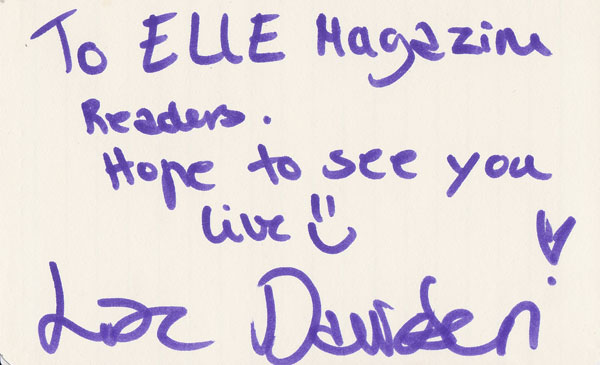 To ELLE Magazine
Readers.
Hope to see you
live